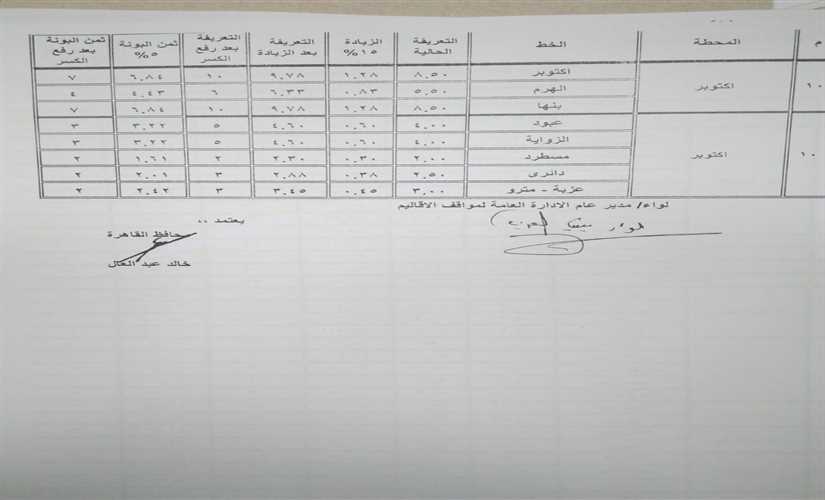 م المحطة الخط التعريفة الحالية الزيادة ١٥% التعريفة بعد الزيادة التعريفة بعد رفع الكسر ثمن البونة ٥% ثمن البونة بعد رفع الكسر
١٠ اكتوبر اكتوبر ٨.٥٠ ١.٢٨ ٩.٧٨ ١٠ ٦.٨٤ ٧
الهرم ٥.٥٠ ٠.٨٣ ٦.٣٣ ٦ ٤.٤٣ ٤
بنها ٨.٥٠ ١.٢٨ ٩.٧٨ ١٠ ٦.٨٤ ٧
١٠ اكتوبر عبود ٤.٠٠ ٠.٦٠ ٤.٦٠ ٥ ٣.٢٢ ٣
الزواية ٤.٠٠ ٠.٦٠ ٤.٦٠ ٥ ٣.٢٢ ٣
مسطرد ٢.٠٠ ٠.٣٠ ٢.٣٠ ٢ ١.٦١ ٢
دائرى ٢.٥٠ ٠.٣٨ ٢.٨٨ ٣ ٢.٠١ ٢
عزبة - مترو ٣.٠٠ ٠.٤٥ ٣.٤٥ ٣ ٢.٤٢ ٢
لواء/ مدير عام الادارة العامة لمواقف الاقاليم
يعتمد ،،
حافظ القاهرة
خالد عبد العال